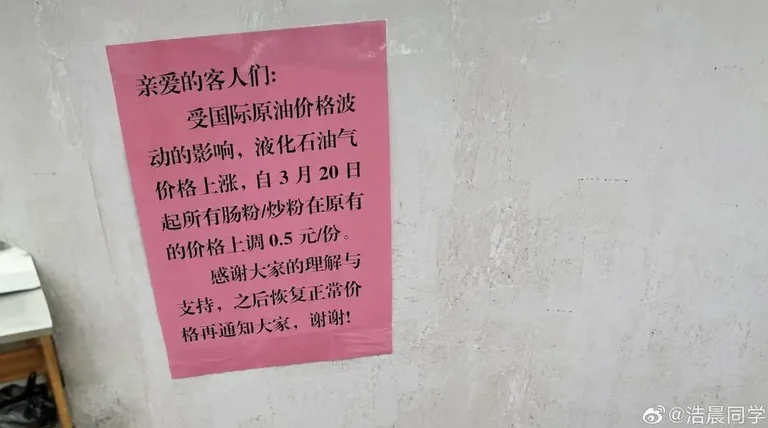 亲爱的客人们:
受国际原油价格波
动的影响，液化石油气
价格上涨，自 3 月 20 日
起所有肠粉/炒粉在原有
的价格上调 0.5 元/份。
感谢大家的理解与
支持，之后恢复正常价
格再通知大家，谢谢!
@浩晨同学